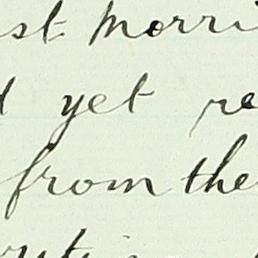 st Morri
yet re
from the